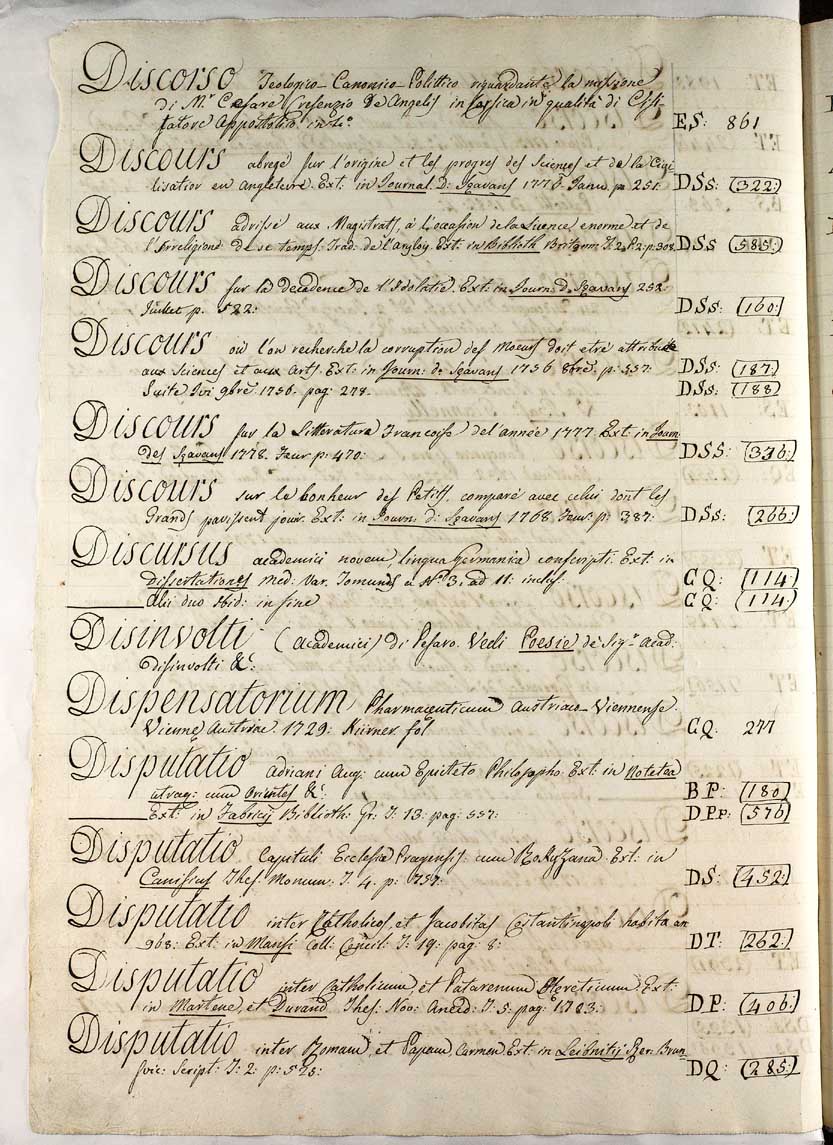 Discorso Teologico-Canonico-Polittico riguardante la missione
di M.r Cesare Cresenzio De Angelis in Corsica in qualità di Visi-
tatore Appostolico in 4.o ES: 861
Discours abregé sur l'origine et les progres des Sciences et de la Civi
lisation en Angleterre. Ext: in Journal. D: Sçavans 1776. Janv. p. 251. DSs: (322:)
Discours adrissé aux Magistrats, à l'occasion de la licence enorme et de
l'Irreligione de se temps. Trad: de l'Anglay. Ext. in Biblioth Britann. T. 2. P. 2. p. 308. DSs (585:)
Discours sur la decadence de l'Idolatie. Ext: in Journ: d. Sçavans 252.
Juillet p. 522: DSs: (160:)
Discours où l'on recherche la corruption des Moeurs doit etré attribuée
aux Sciences et aux Arts. Ext: in Journ: de Sçavans 1756 8bre. p: 557: DSs: (187:)
Suite Ivi 9bre. 1756. pag: 278. DSs: (188)
Discours sur la Litterature Francoiss del'année 1777. Ext: in Journ
des Sçavans 1778. Feur. p: 470: DSS: (336:)
Discours sur le bonheur des Petits, comparé avec celui dont les
Grands pavissent jouir. Ext: in Journ: d: Sçavans 1768. Feur. p: 387: DSs: (266:)
Discursus academici novem, lingua Germanica conscripti. Ext: in
Dissertationes Med: Var. Tomus a N.o 3. ad 11: inclus: CQ: (114:)
Alii duo ibid: in fine CQ: (114:)
Disinvolti (Academici) di Pesaro. Vedi Poesie de' Sig.ri Acad:
Disinvolti &c:
Dispensatorium Pharmaceuticum Austriaco-Viennense.
Vienne Austriae. 1729: Kürner fol CQ: 277
Disputatio Adriani Aug: cum Epicteto Philosopho. Ext: in Notitia
utraq: cum Orientes &c: BP: (180)
Ext: in Fabricij Biblioth: Gr: T: 13. pag: 557: DPp: (576)
Disputatio Capituli Ecclesiæ Pragensis cum Rokyzzana. Ext: in
Canisius Thes: Monum: T. 4. p: 757: DS: (452:)
Disputatio inter Catholicos, et Jacobitas Costantinopoli habita an
968: Ext: in Mansi Coll: Concil: T: 19: pag: 8: DT: (262:)
Disputatio inter Catholicum, et Patarenum Hereticum. Ext:
in Martene, et Durand. Thes: Noo: Anecd: T: 5. pag: 1703: DP: (406:)
Disputatio inter Romam, et Papam, Carmen. Ext: in Leibnitij Rer: Brun
svic: Script: T: 2. p: 525: DQ: (285:)